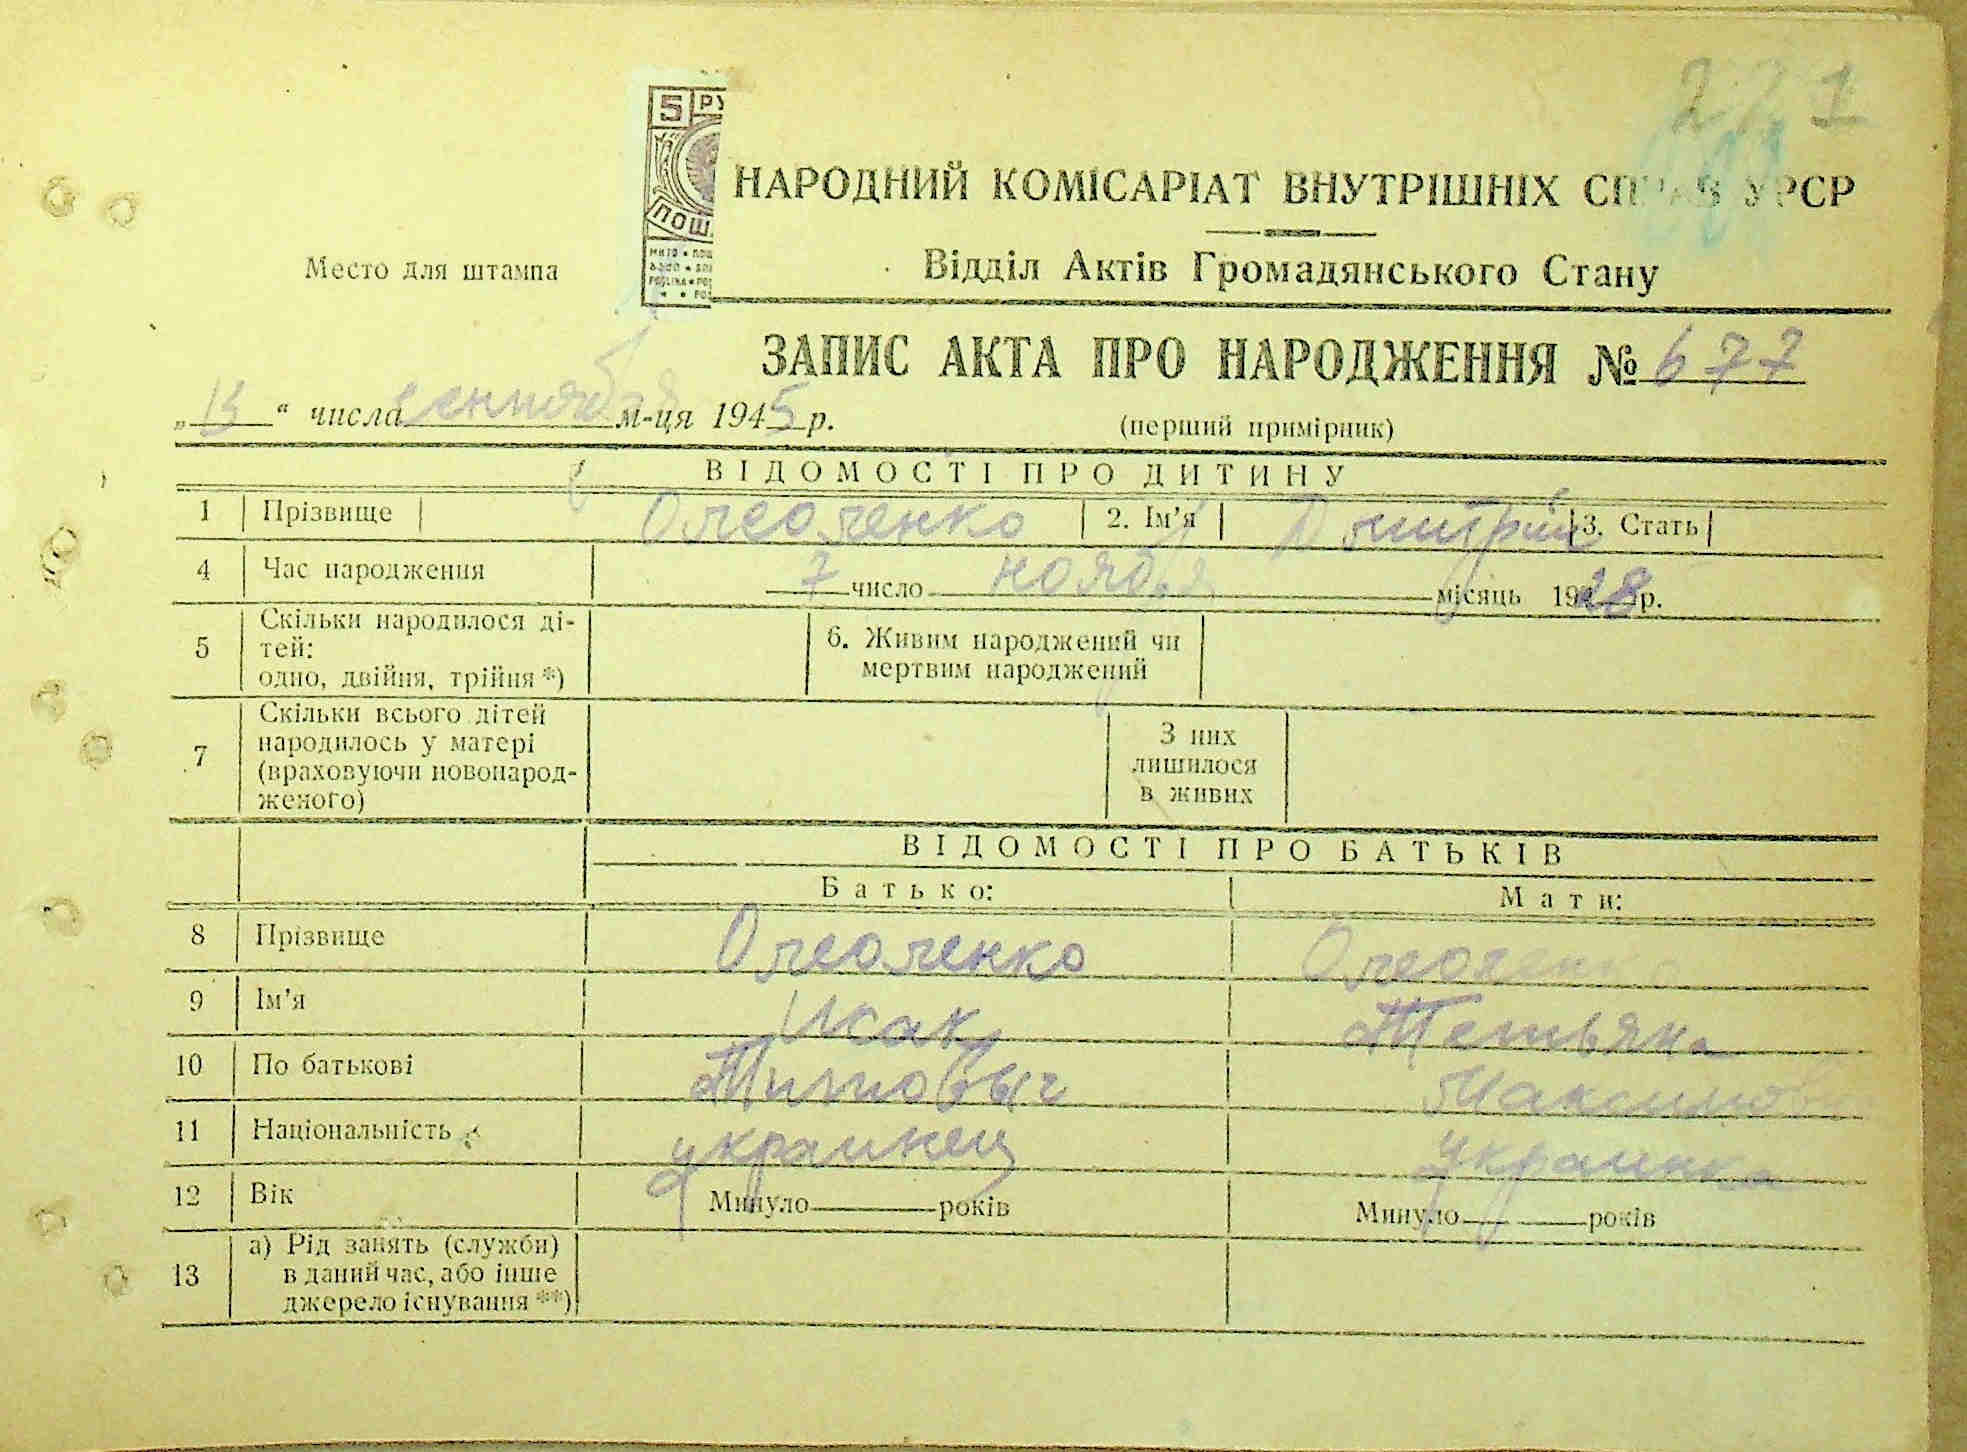 221
5 РУ
ПОШ
НАРОДНИЙ КОМІСАРІАТ ВНУТРІШНІХ СПРАВ УРСР
Відділ Актів Громадянського Стану
Место для штампа
ЗАПИС АКТА ПРО НАРОДЖЕННЯ № 677
„ " числа сентября м-ця 1945 р.
(перший примірник)
ВІДОМОСТІ ПРО ДИТИНУ
1 Прізвище 2. Ім'я Дмитрий 3. Стать
4 Час народження 7 число ноября місяць 1928 р.
5 Скільки народилося ді-
тей:
одно, двійня, трійня *)
6. Живим народжений чи
мертвим народжений
7 Скільки всього дітей
народилось у матері
(враховуючи новонарод-
женого)
З них
лишилося
в живих
ВІДОМОСТІ ПРО БАТЬКІВ
Батько: Мати:
8 Прізвище
9 Ім'я Исак Тетьяна
10 По батькові Титовыч
11 Національність украинец украинка
12 Вік Минуло років Минуло років
13 а) Рід занять (служби)
в даний час, або інше
джерело існування **)